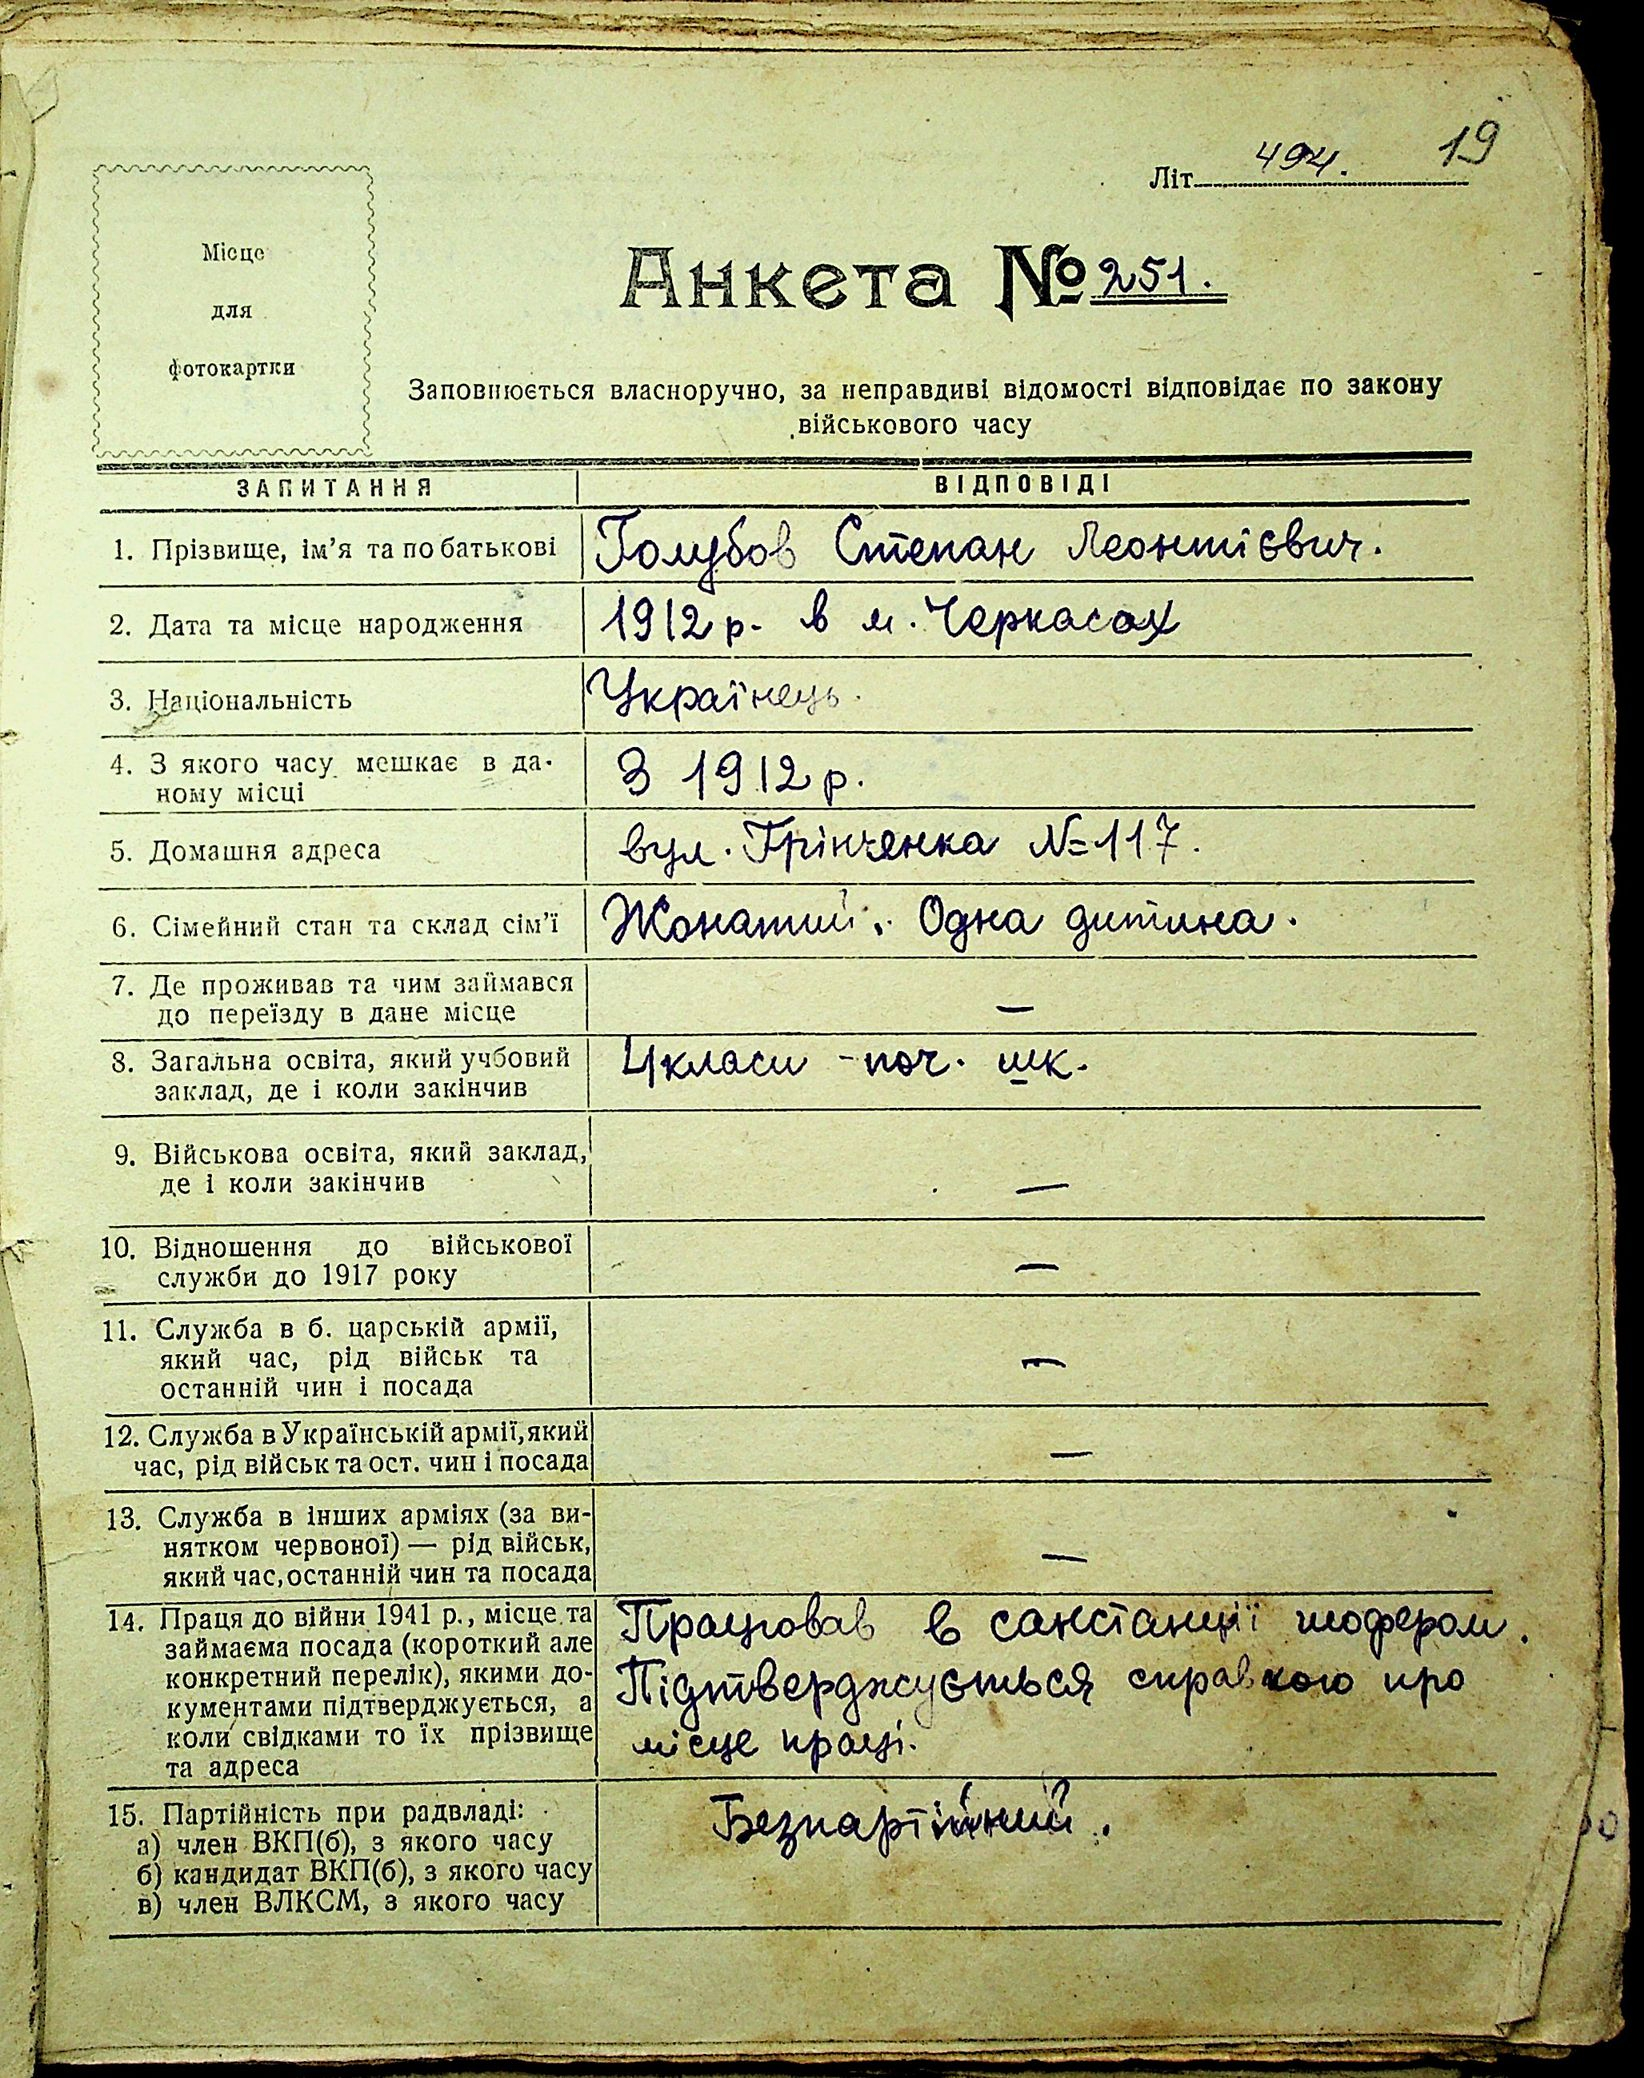 19
Літ. 494.
Місце
для
фотокартки
Анкета № 251.
Заповнюється власноручно, за неправдиві відомості відповідає по закону
військового часу
ЗАПИТАННЯ
ВІДПОВІДІ
1. Прізвище, ім'я та по батькові
Голубов Степан Леонтієвич.
2. Дата та місце народження
1912 р. в м. Черкасах
3. Національність
Українець.
4. З якого часу мешкає в да-
ному місці
З 1912 р.
5. Домашня адреса
вул. Грінченка №117.
6. Сімейний стан та склад сім'ї
Жонатий. Одна дитина.
7. Де проживав та чим займався
до переїзду в дане місце
—
8. Загальна освіта, який учбовий
заклад, де і коли закінчив
4 класи - поч. шк.
9. Військова освіта, який заклад,
де і коли закінчив
—
10. Відношення до військової
служби до 1917 року
—
11. Служба в б. царській армії,
який час, рід військ та
останній чин і посада
—
12. Служба в Українській армії, який
час, рід військ та ост. чин і посада
—
13. Служба в інших арміях (за ви-
нятком червоної) — рід військ,
який час, останній чин та посада
—
14. Праця до війни 1941 р., місце та
займаєма посада (короткий але
конкретний перелік), якими до-
кументами підтверджується, а
коли свідками то їх прізвище
та адреса
Працював в санстанції шофером.
Підтверджується справкою про
місце праці.
15. Партійність при радвладі:
а) член ВКП(б), з якого часу
б) кандидат ВКП(б), з якого часу
в) член ВЛКСМ, з якого часу
Безпартійний.